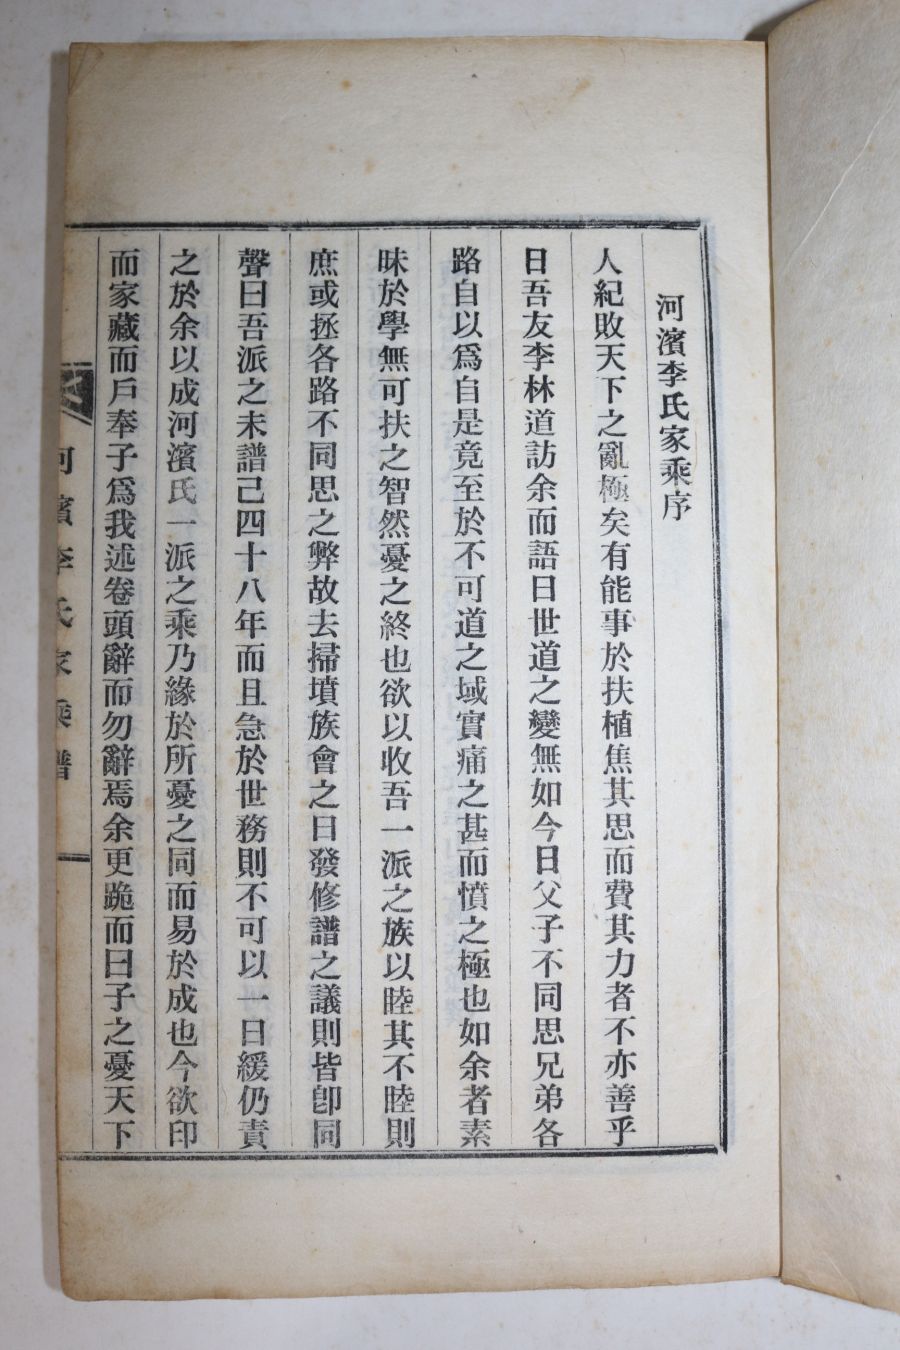 河濱李氏家乘序
人紀敗天下之亂極矣有能事於扶植焦其思而費其力者不亦善乎
日吾友李林道訪余而語曰世道之變無如今日父子不同思兄弟各
路自以爲自是竟至於不可道之域實痛之甚而憤之極也如余者素
昧於學無可扶之智然憂之終也欲以收吾一派之族以睦其不睦則
庶或拯各路不同思之弊故去掃墳族會之日發修譜之議則皆卽同
聲曰吾派之未譜己四十八年而且急於世務則不可以一日緩仍責
之於余以成河濱氏一派之乘乃緣於所憂之同而易於成也今欲印
而家藏而戶奉子爲我述卷頭辭而勿辭焉余更跪而曰子之憂天下
河濱李氏家乘譜
一